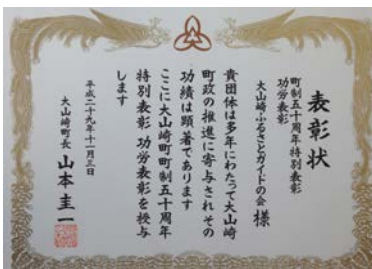 表彰状
町制五十周年特別表彰
功労表彰
大山崎ふるさとガイドの会 様
貴団体は多年にわたって大山崎
町政の推進に寄与されその
功績は顕著であります
ここに大山崎町町制五十周年
特別表彰 功労表彰を授与
します
平成二十九年十一月三日
大山崎町長 山本圭一